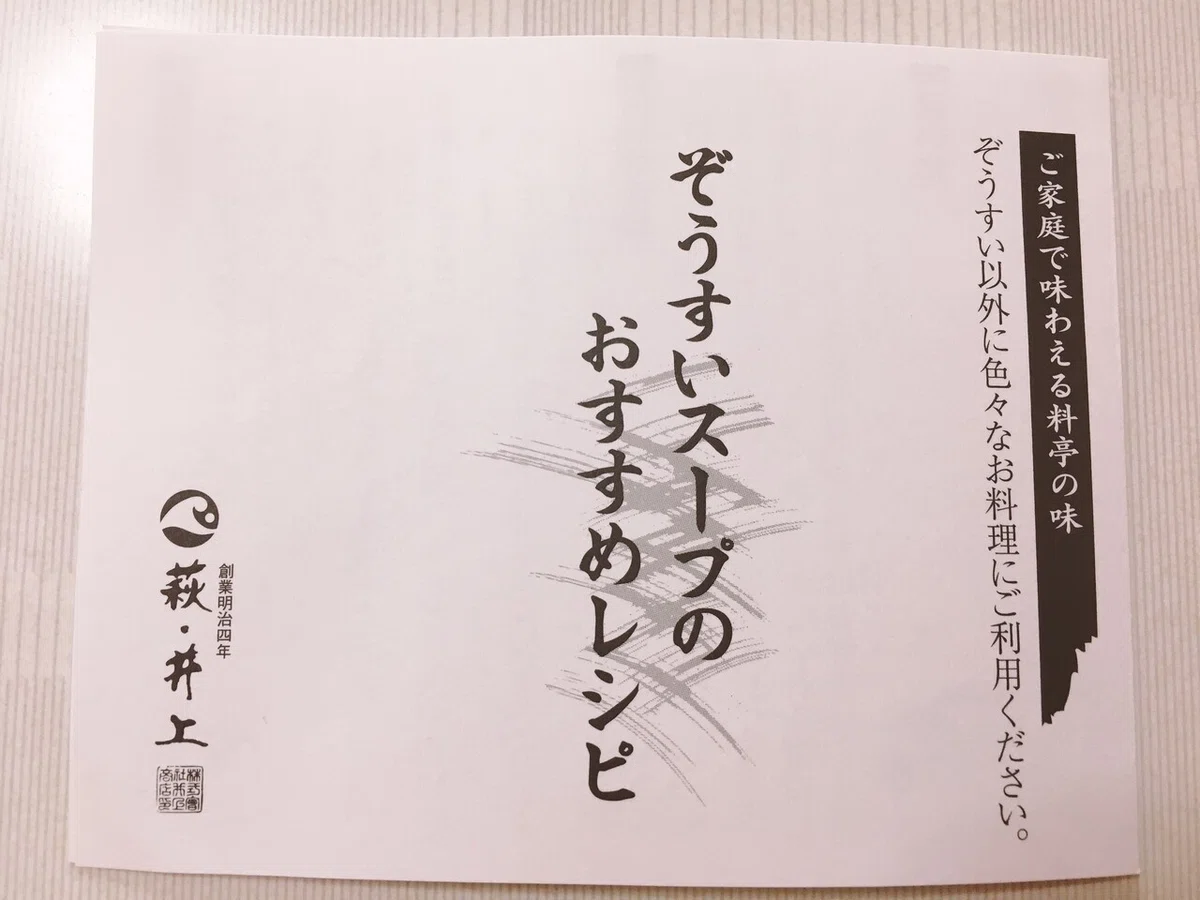 ご家庭で味わえる料亭の味
ぞうすい以外に色々なお料理にご利用ください。
ぞうすいスープの
おすすめレシピ
創業明治四年
萩・井上